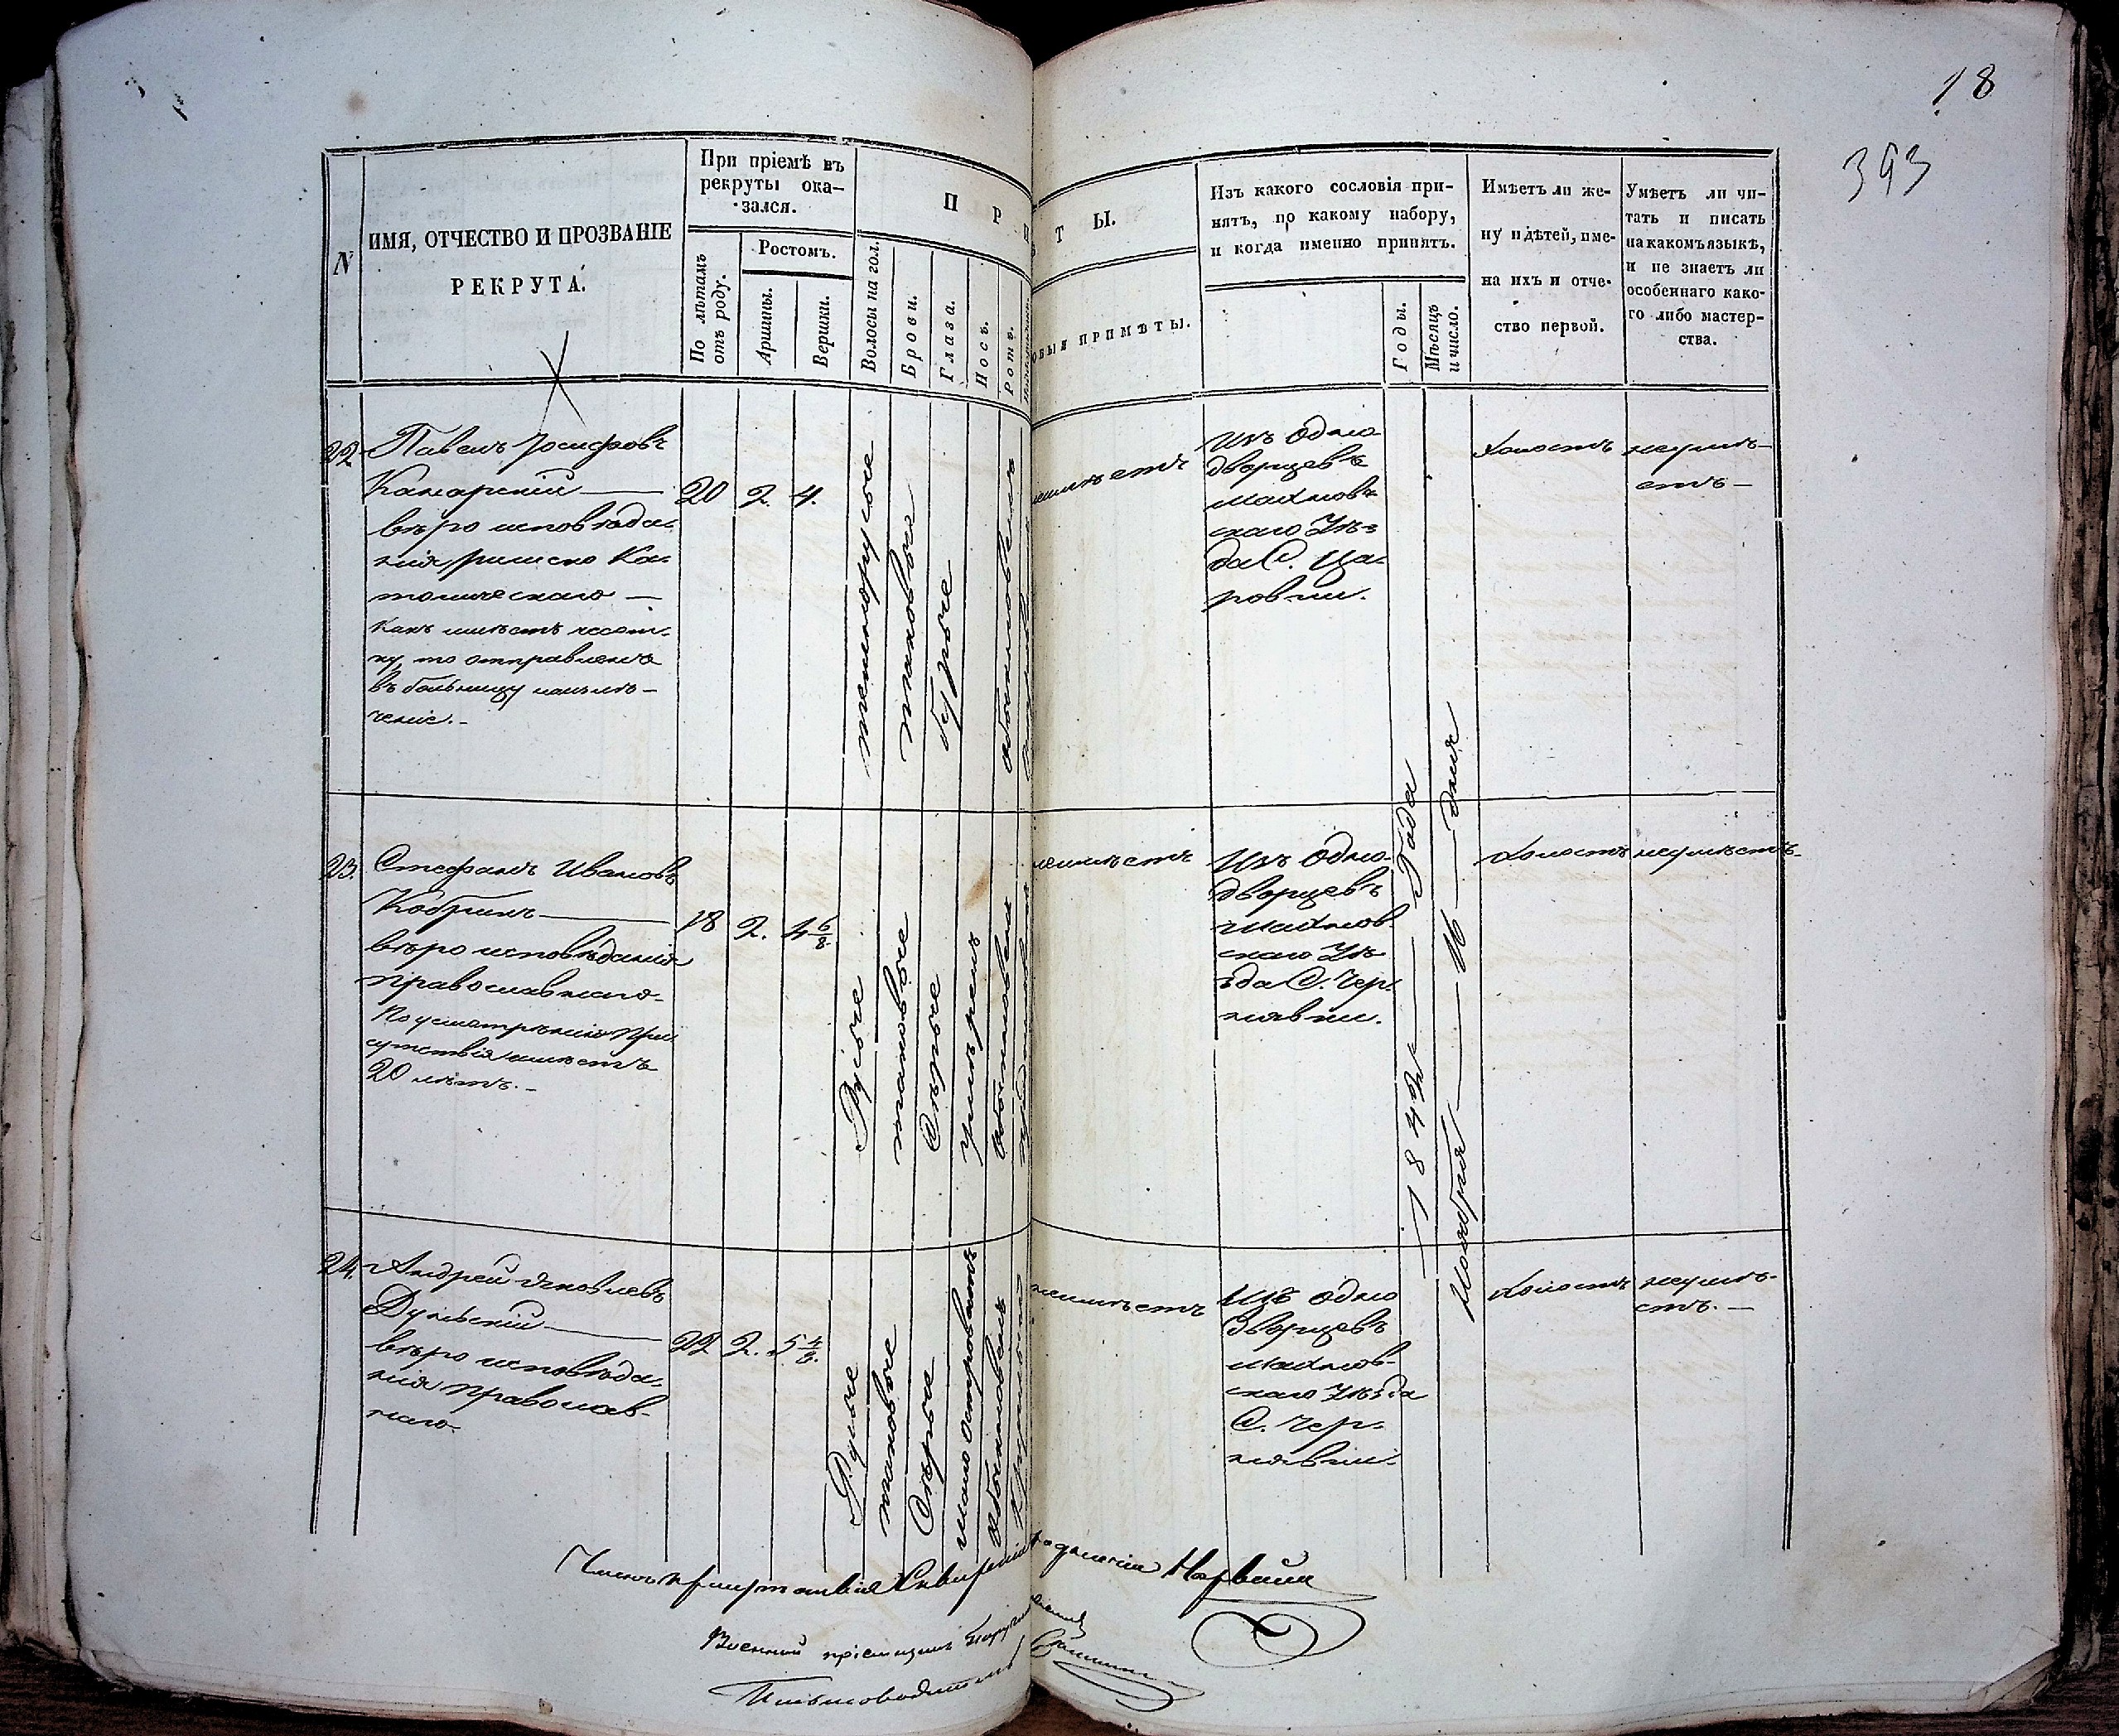 18
393
N
ИМЯ, ОТЧЕСТВО И ПРОЗВАНІЕ
РЕКРУТА.
При пріемѣ въ
рекруты ока-
зался.
По лѣтамъ
отъ роду.
Ростомъ.
Аршины.
Вершки.
П Р И
Т Ы.
Волосы на гол.
Брови.
Глаза.
Носъ.
Ротъ.
ОВЫЯ ПРИМѢТЫ.
Изъ какого сословія при-
нятъ, по какому набору,
и когда именно принятъ.
Годы.
Мѣсяцъ
и число.
Имѣетъ ли же-
ну и дѣтей, име-
на ихъ и отче-
ство первой.
Умѣетъ ли чи-
тать и писать
на какомъ языкѣ,
и не знаетъ ли
особеннаго како-
го либо мастер-
ства.
22
Павелъ Іосифовъ
Камарскій
вѣро исповѣда-
нія римско Ка-
толическаго —
Какъ имѣетъ чесот-
ку, то отправленъ
въ больницу на излѣ-
ченіе. -
20
2.
4.
темнорусые
таковыя
бурые
обыкновенъ
неимѣетъ
Изъ одно
дворцевъ
махнов-
скаго Уѣз-
да С. Ца-
ровки.
холостъ
неумѣ-
етъ —
23.
Стефанъ Ивановъ
Кобринъ
вѣро исповѣданія
православнаго.
По усмотрѣнію при
сутствія имѣетъ
20 лѣтъ. -
18
2.
4 6/8
Русые
таковые
Сѣрые
умѣренъ
обыкновенъ
неимѣетъ
Изъ Одно
дворцевъ
махнов-
скаго Уѣ
зда С. Чер-
нявки.
холостъ
неумѣетъ.
24.
Андрей Яковлевъ
Дульскій
вѣро исповѣда-
нія православ-
наго.
22
2.
5 4/8.
Русые
таковые
Сѣрые
мало островатъ
обыкновенъ
Круглый
неимѣетъ
Изъ одно
дворцевъ
махнов-
скаго Уѣзда
С. Чер-
нявки.
холостъ
неумѣ-
етъ. —
1842 — Года
Ноября — 16 — дня
Членъ присутствія
Военный пріемщикъ
Письмоводитель